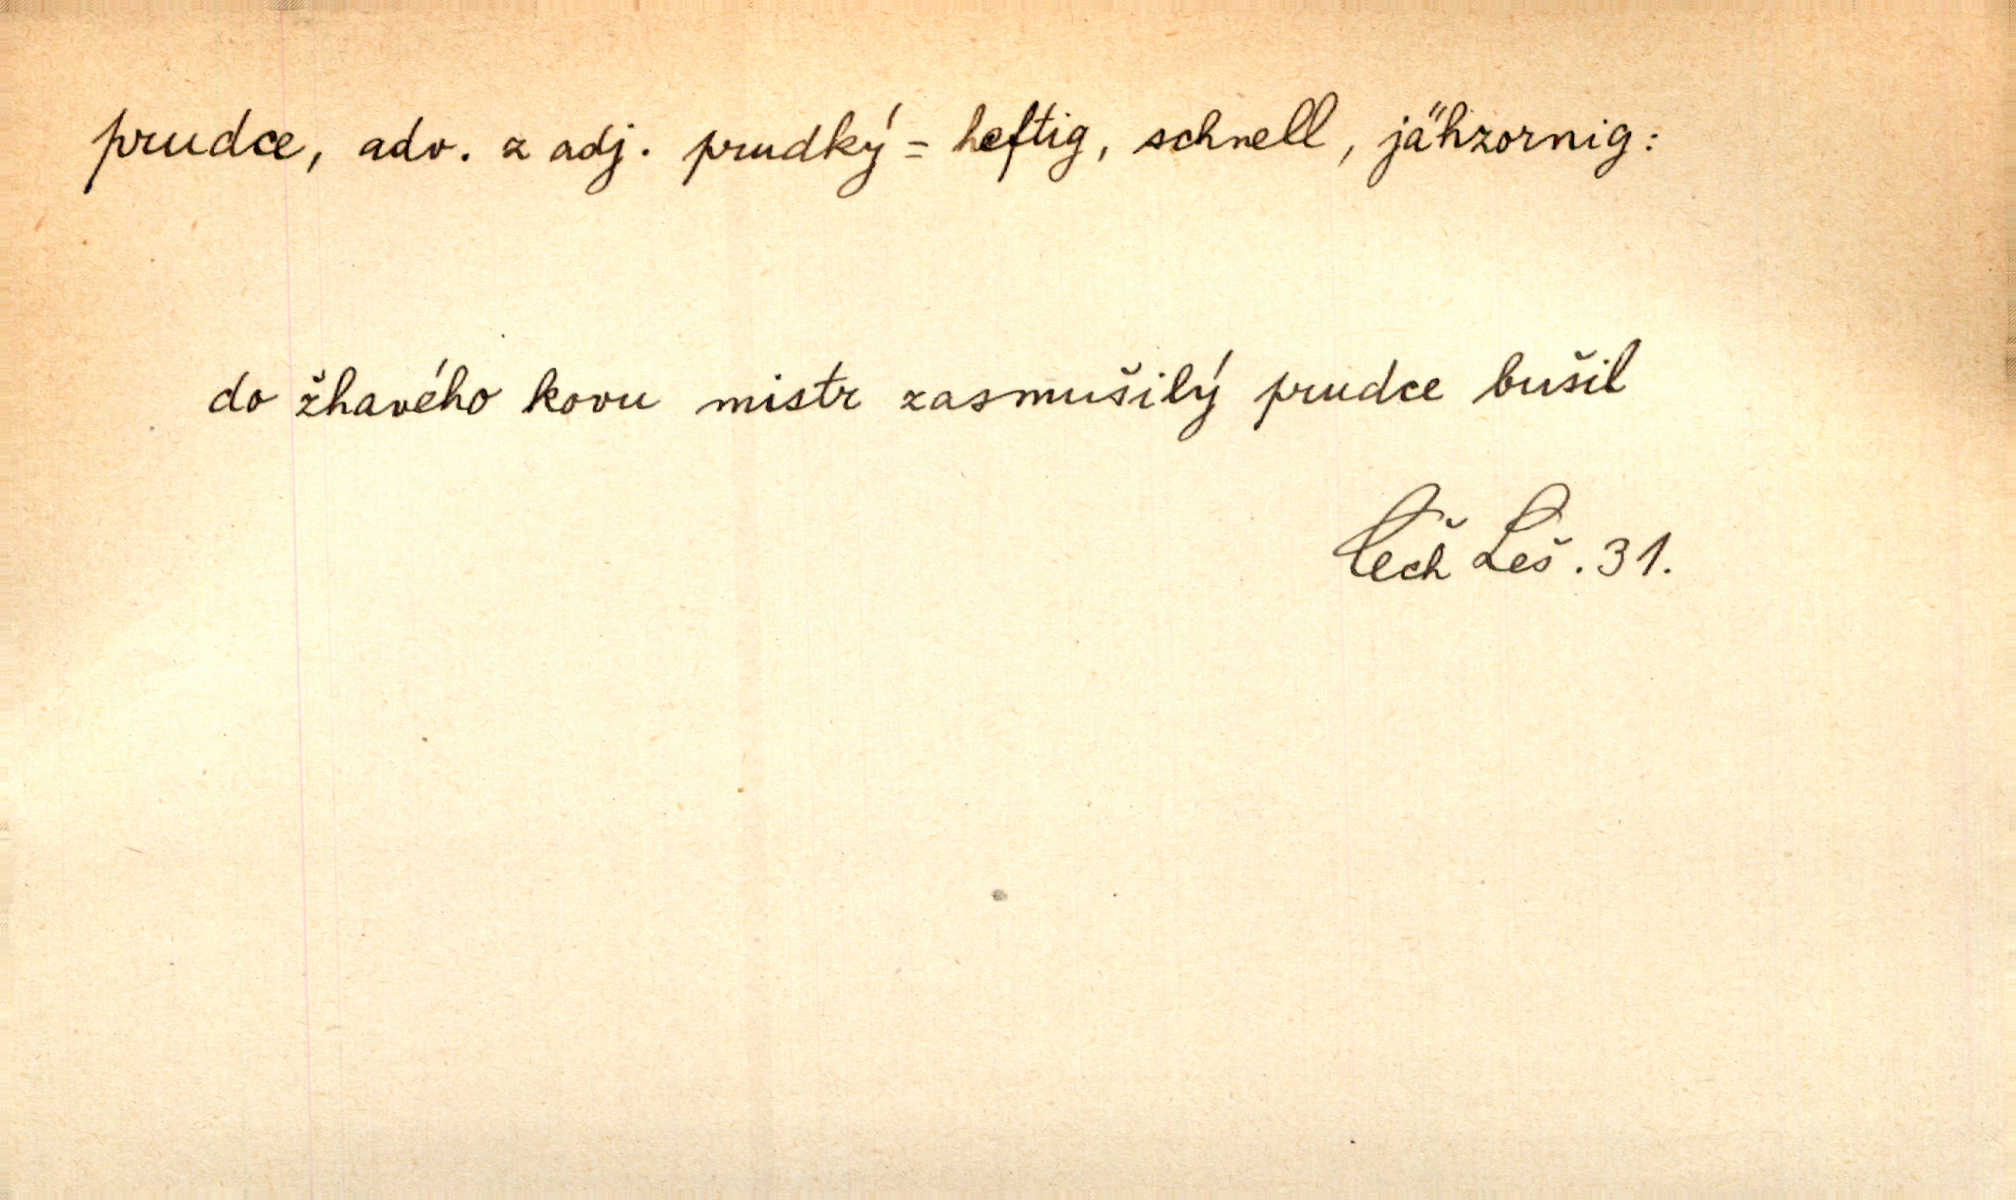 prudce, adv. z adj. prudký = heftig, schnell, jähzornig:
do žhavého kovu mistr zasmušilý prudce bušil
Čech Leš. 31.